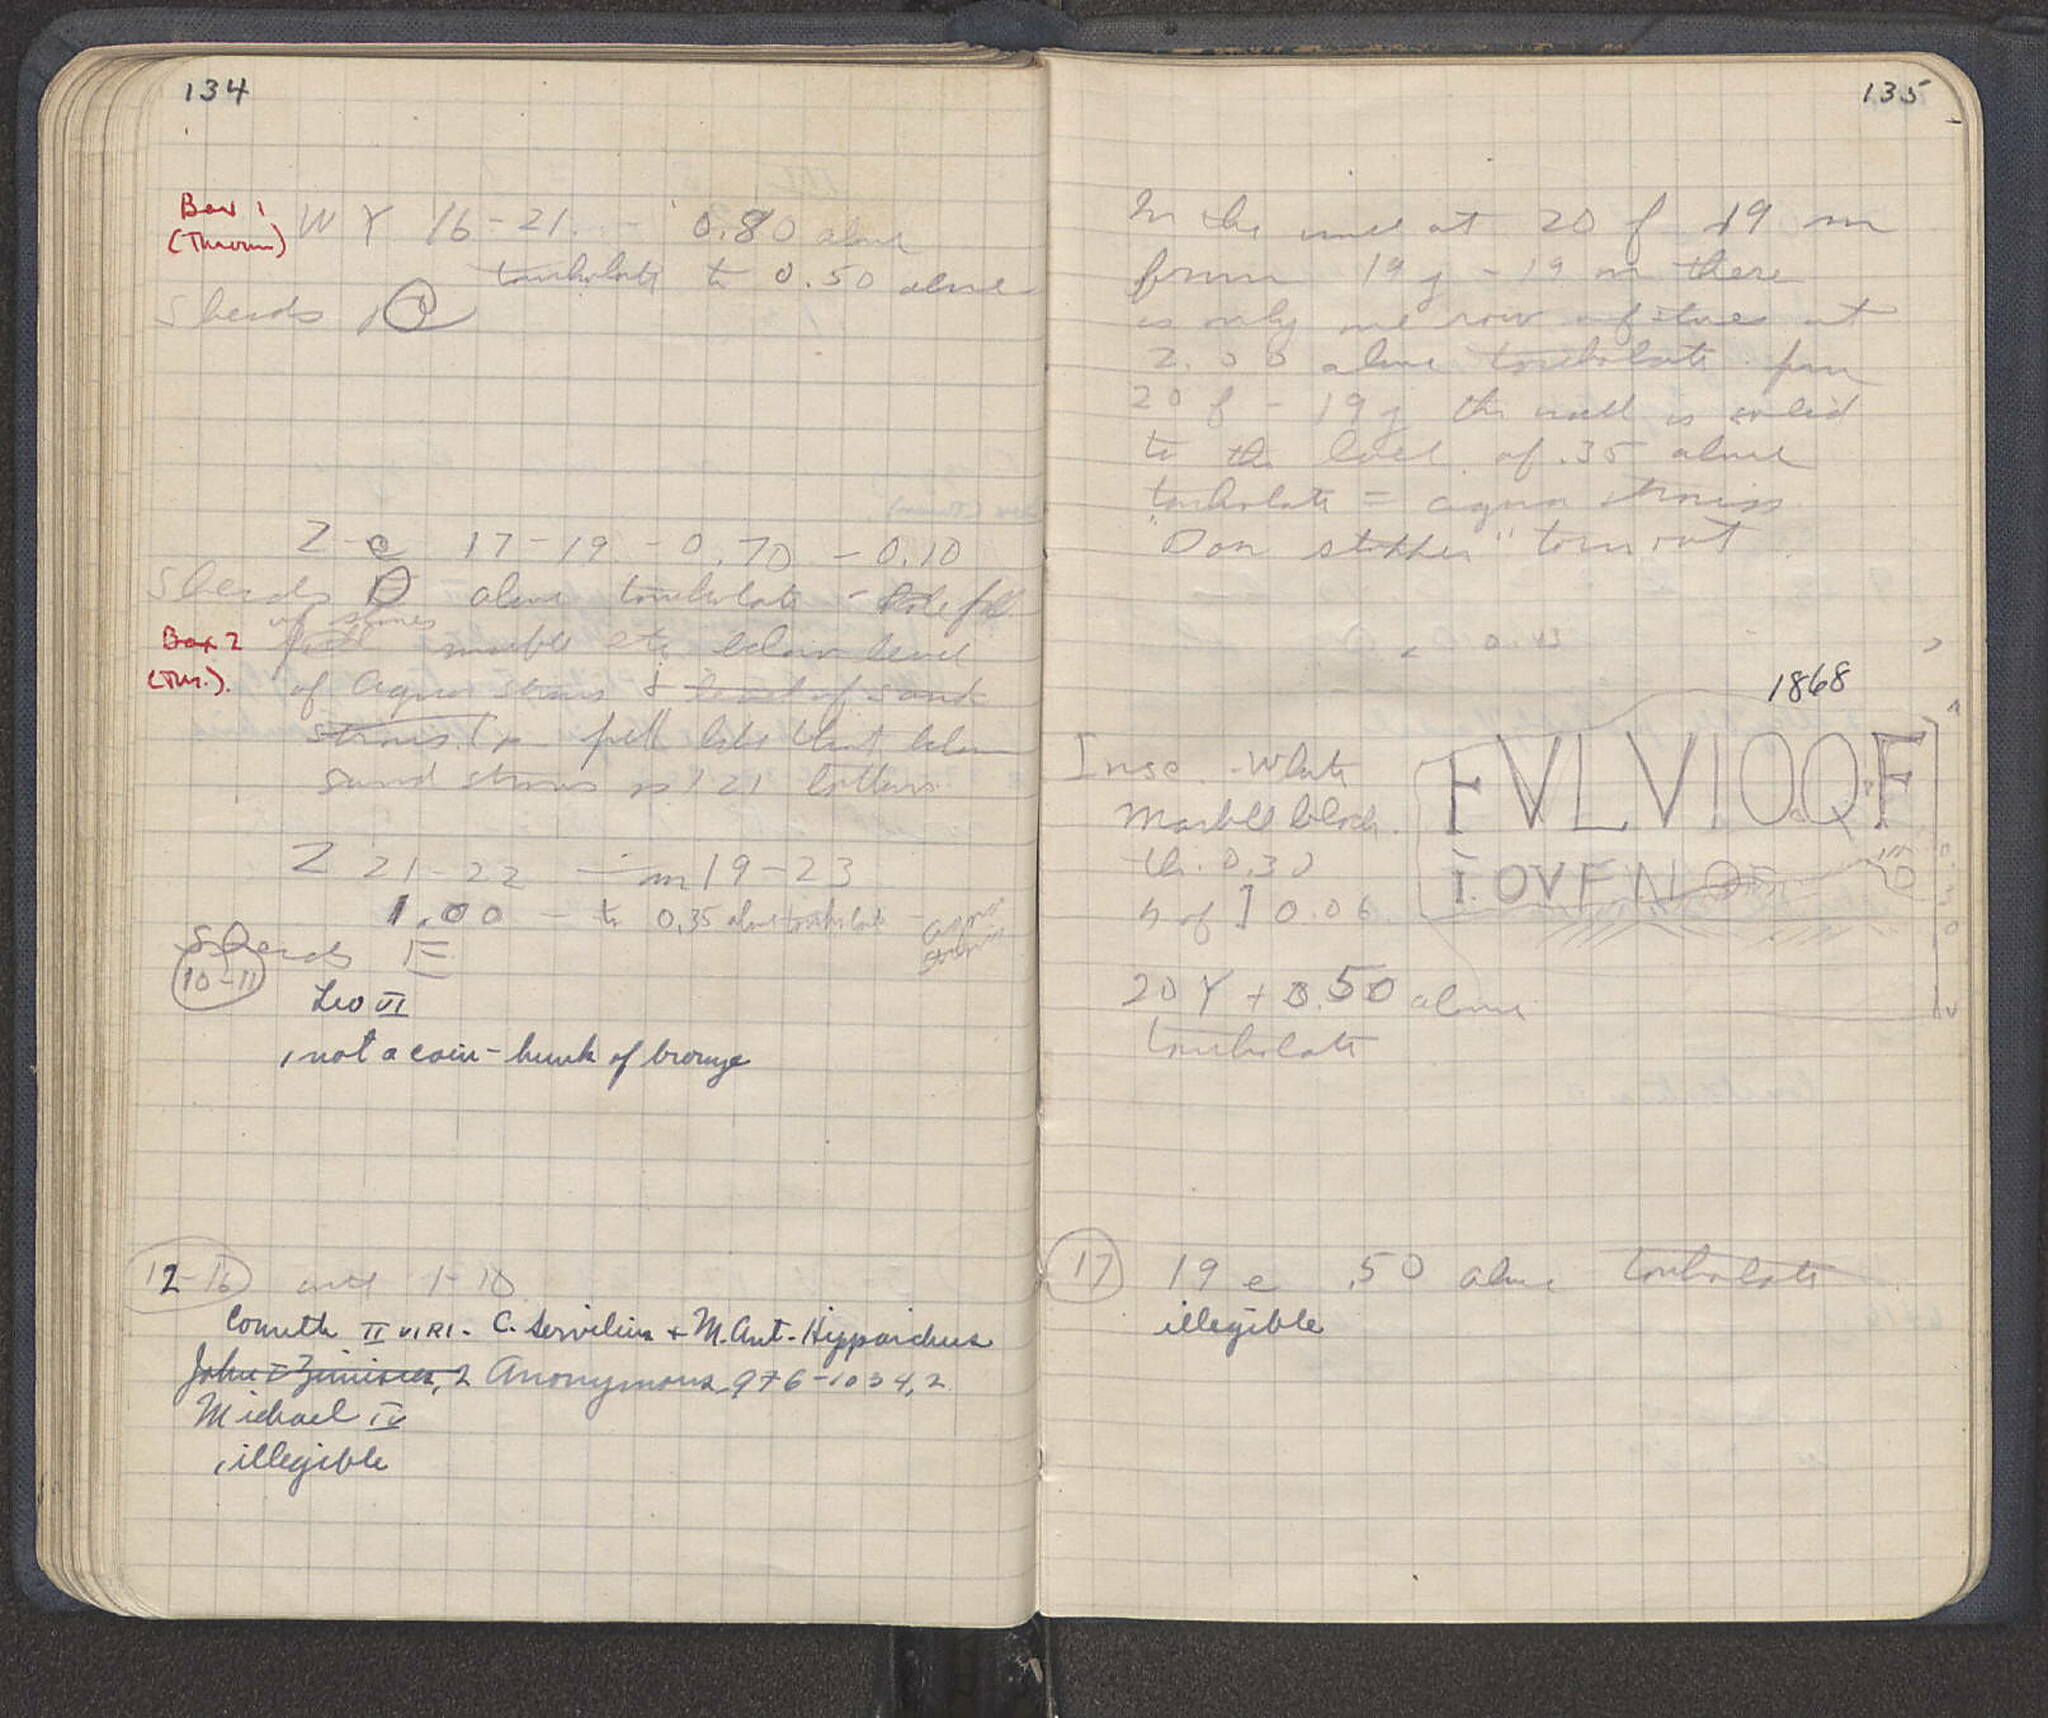 134
Box 1
(Thrown)
W Y 16-21 - 0.80 above
toubulati to 0.50 above
Sherds
Z-e 17-19 - 0.70 - 0.10
Sherds D above toubulati - Hole full
of stones
Box 2
(Thr.).
marble etc below level
of agua strosis & level of sand
strosis. fill like that below
sand strosis
Z 21-22 - m 19-23
1.00 - to 0.35 above toubulati - agua strosis
Sherds E
10-11
Leo VI
not a coin - hunk of bronze
12-16 until 1-10
Corinth II VIRI. C. Servilius + M. Ant. Hipparchus
John I Zimisces, 2 Anonymous 976-1034, 2
Michael IV
illegible
135
In the wall at 20 f 19 m
from 19 g - 19 m there
is only one row of stones at
2.00 above toubulati from
20 f - 19 g the wall is solid
to the level of .35 above
toubulati = agua strosis
"Don stopher" torn out
1868
Insc - White
Marble block.
th. 0.30
h of ] 0.06
FVLVIOQF
I. OVFN
20 Y + 0.50 above
toubulati
17 19 e .50 above toubulati
illegible